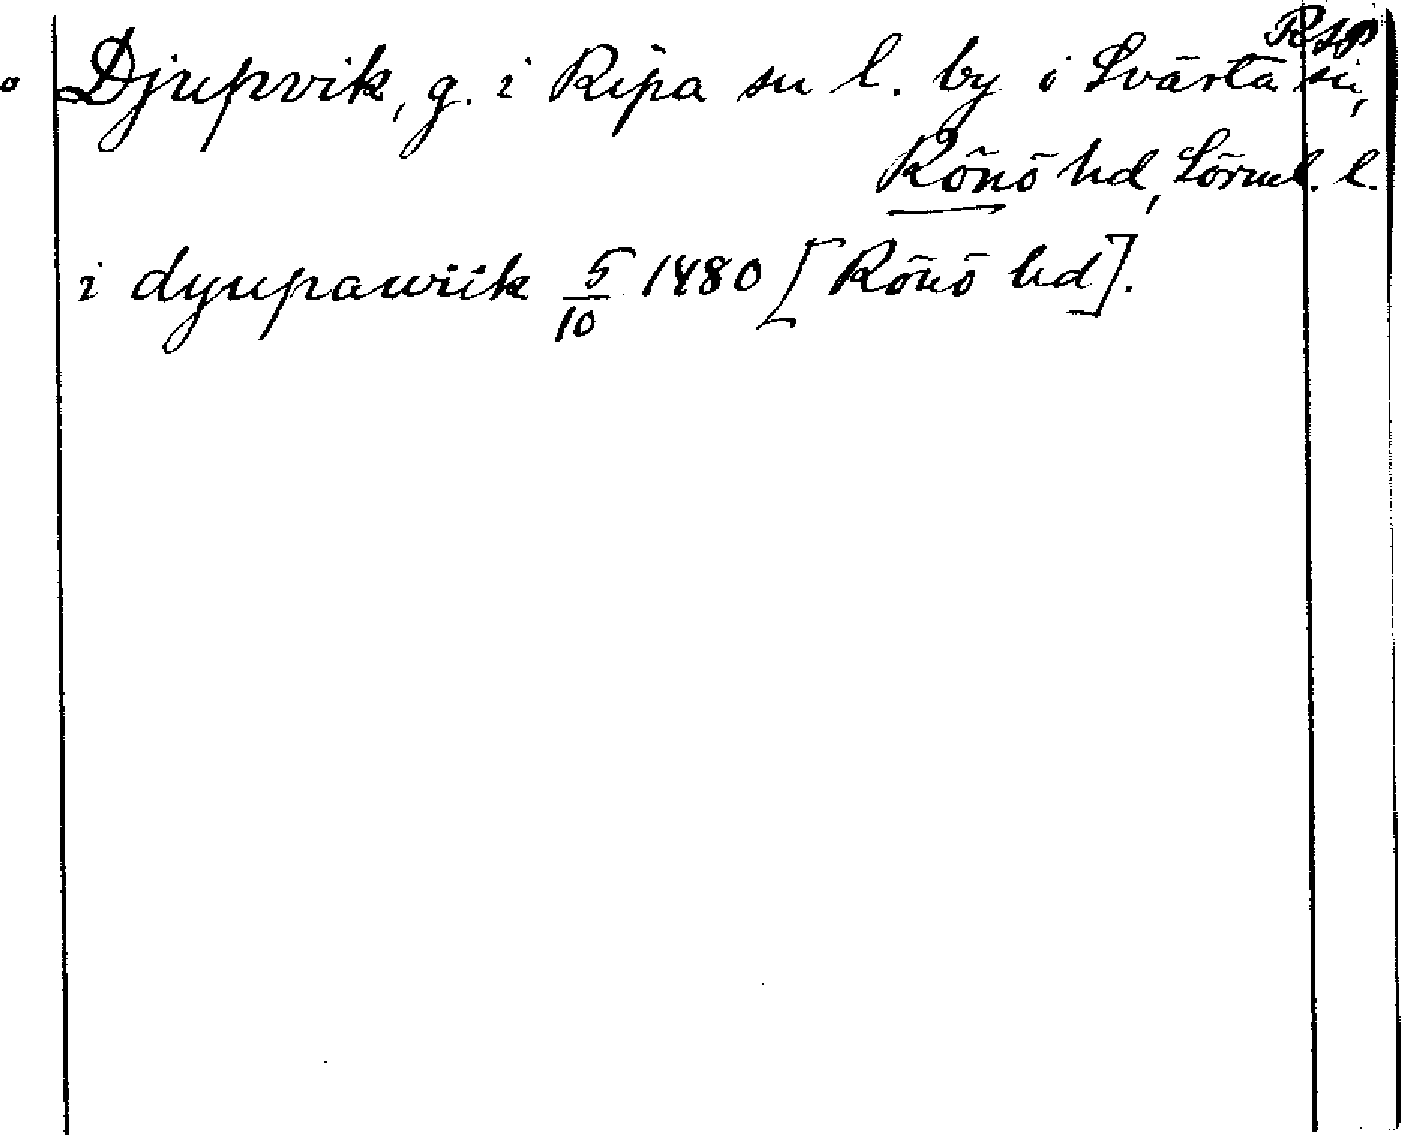 Rsp
Djupvik, g. i Ripa su l. by i Svärta sn,
Rönö hd, Sörml. l.
i dyupawiik 5/10 1480 [Rönö hd].